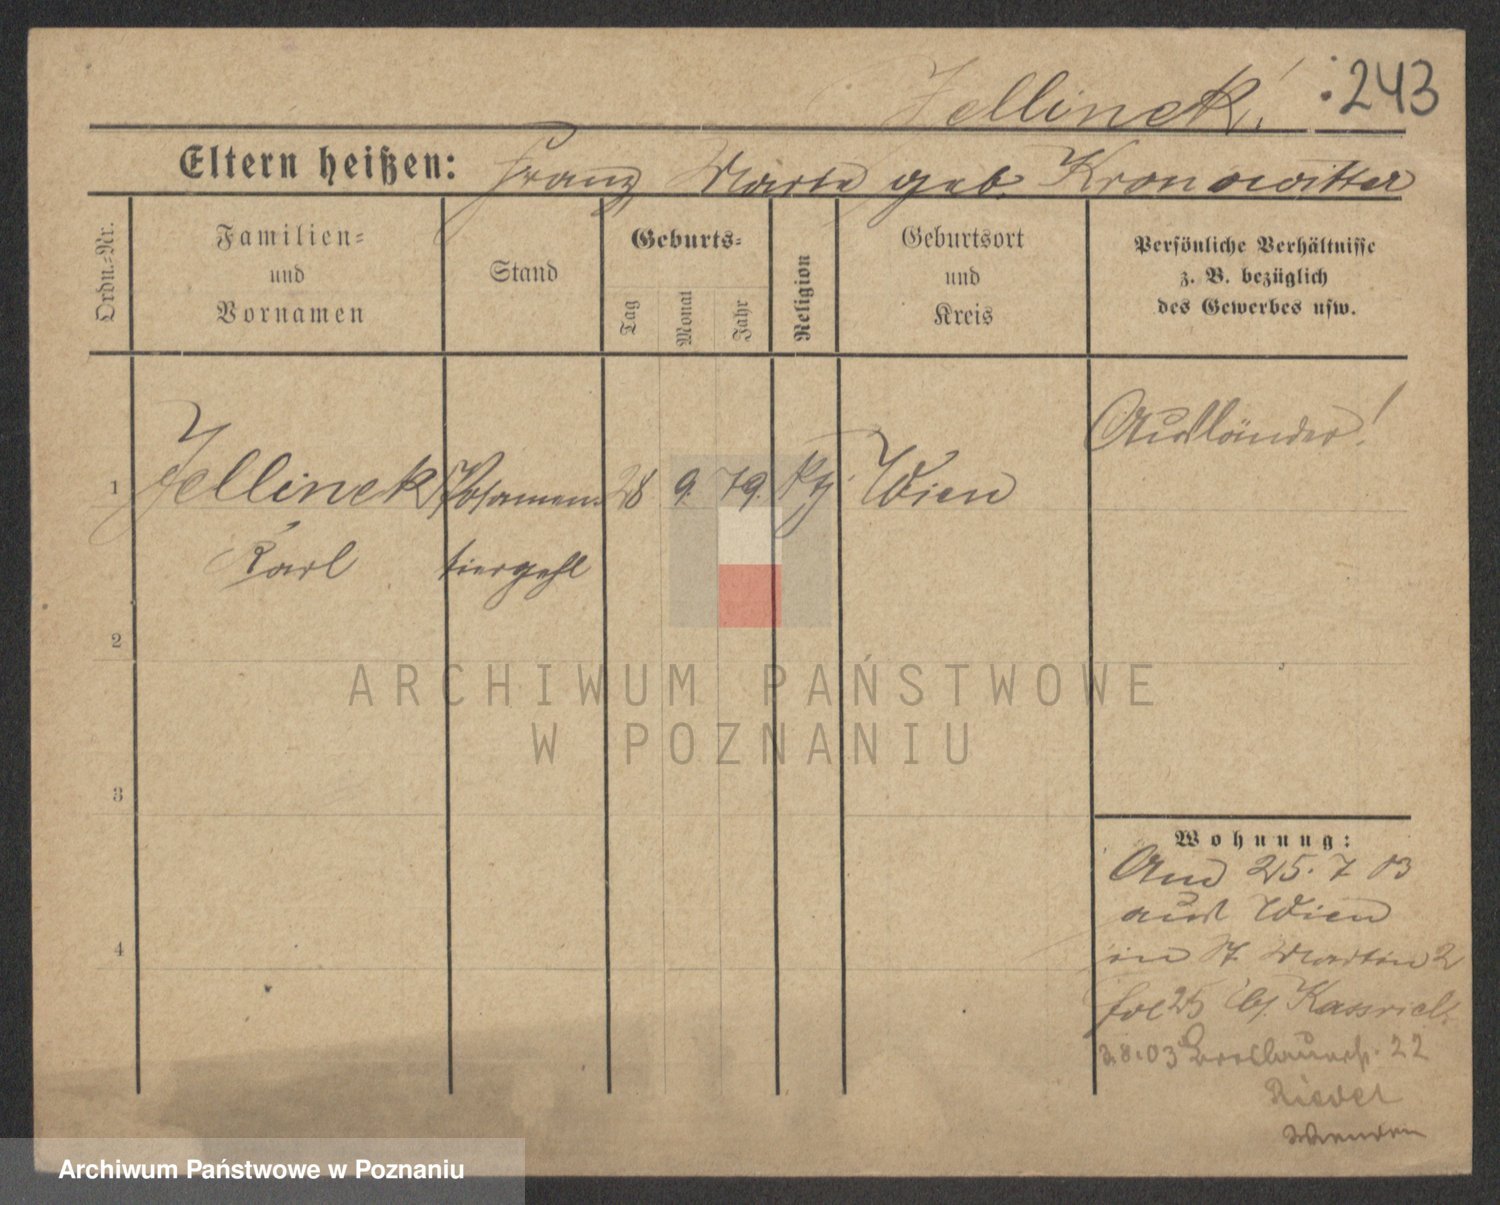 Jellinek!
:243
Eltern heißen: Franz, Marie geb. Kronowitter
Ordn.-Nr.
Familien-
und
Vornamen
Stand
Geburts-
Tag
Monat
Jahr
Religion
Geburtsort
und
Kreis
Persönliche Verhältnisse
z. B. bezüglich
des Gewerbes usw.
Ausländer!
1 Jellinek Posamen- 28 9. 79. Wien
Karl tiergehl
2
3
4
ARCHIWUM PAŃSTWOWE
W POZNANIU
Wohnung:
25. 7 03
aus Wien
in St Martin 2
25 b/
3.8.03 Breslauerstr. 22
Riedel
Archiwum Państwowe w Poznaniu